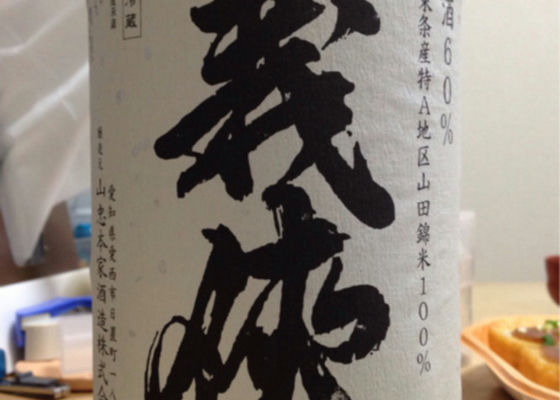 酒60%
条産特A地区山田錦米100%
義侠
冷蔵
愛知県愛西市日置町一八
醸造元 山忠本家酒造株式会